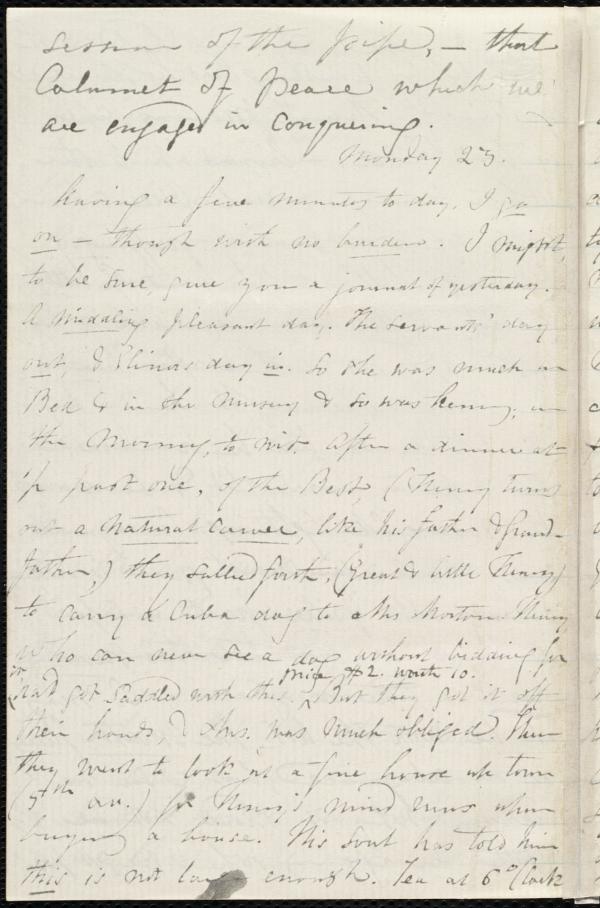 session of the pipe, – that
Calumet of peace which we
are engaged in Conquering.
Monday 25.
Having a few minutes to day, I go
on – though with no burden. I might,
to be sure, give you a journal of yesterday.
A middling pleasant day. The servants' day
out, & Elinor's day in. So she was much in
Bed & in the nursery & so was Henry, in
the Morning, to wit. After a dinner at
½ past one, of the Best, (Henry turns
out a natural carver, like his father & Grand-
father,) they sallied forth, (great & little Henry)
to carry a Cuba dog to Mrs Morton. Henry
who can never see a dog without bidding for
it had got saddled with this. Price $2. worth 10. But they got it off
their hands, & Mrs. was much obliged. Then
they went to look at a fine house up town
(5th av.) for Henry's mind runs upon
buying a house. His soul has told him
this is not large enough. Tea at 6 o'Clock